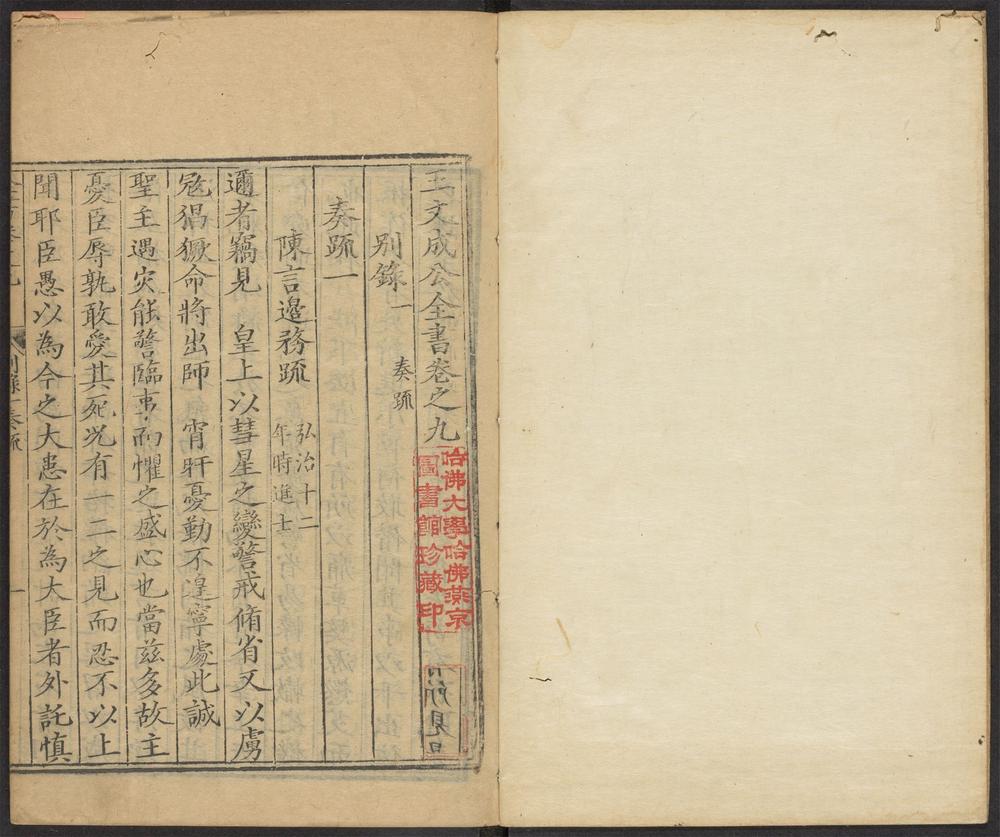 王文成公全書卷之九
別錄一 奏疏
奏疏一
陳言邊務疏 弘治十二
年時進士
邇者竊見 皇上以彗星之變警戒脩省又以虜
寇猖獗命將出師 宵旰憂勤不遑寧處此誠
聖主遇灾能警臨事而懼之盛心也當茲多故主
憂臣辱孰敢愛其死况有一二之見而忍不以上
聞耶臣愚以為今之大患在於為大臣者外託慎
別錄一奏疏
一
哈佛大學哈佛燕京
圖書館珍藏印
所見